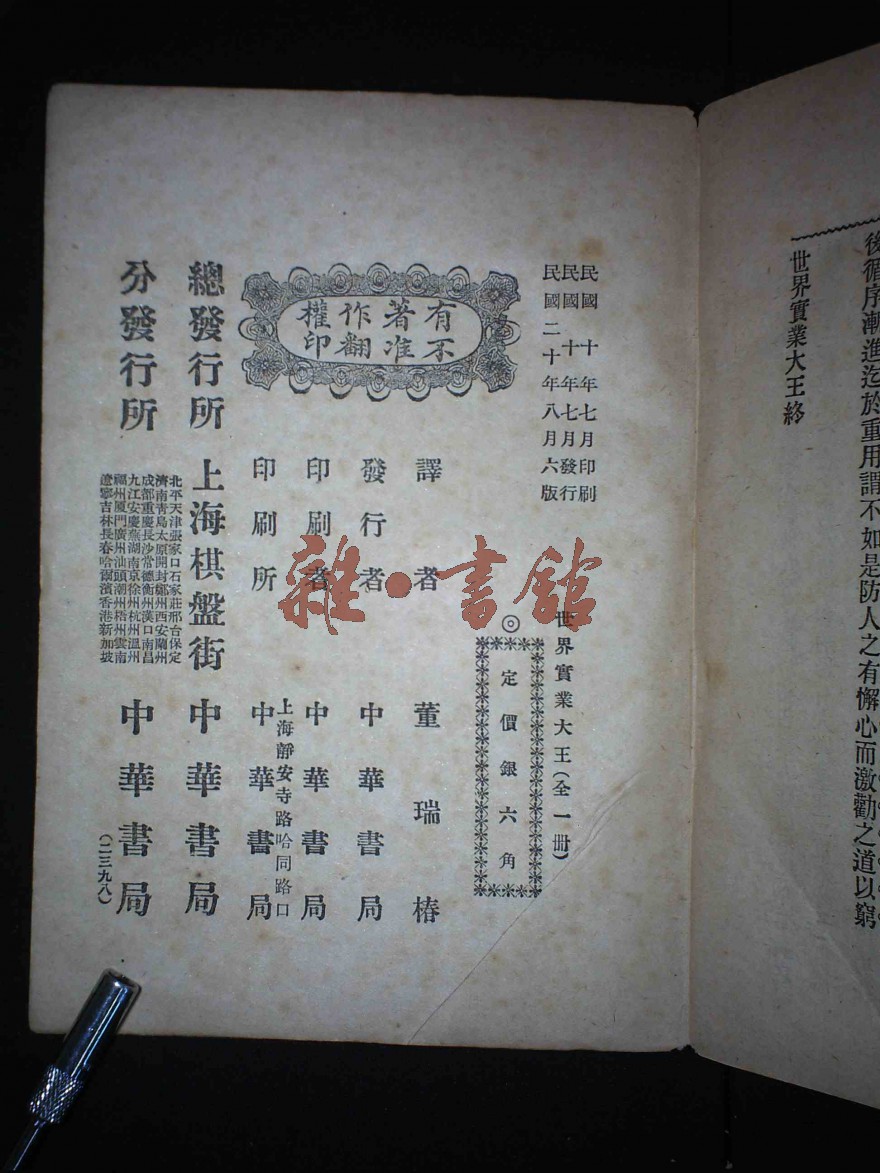 後循序漸進迄於重用謂不如是防人之有懈心而激勸之道以窮
世界實業大王終
民國十年七月印刷
民國十年七月發行
民國二十年八月六版
世界實業大王(全一册)
◎定價銀六角
有著作權
不准翻印
譯者 董瑞椿
發行者 中華書局
印刷者 中華書局
上海靜安寺路哈同路口
印刷所 中華書局
總發行所 上海棋盤街 中華書局
分發行所
北平天津張家口石家莊邢台保定
濟南青島太原開封鄭州西安蘭州
成都重慶長沙常德衡州漢口南昌
九江安慶蕪湖南京徐州杭州溫州
福州厦門廣州汕頭潮州梧州雲南
遼寧吉林長春哈爾濱香港新加坡
中華書局
(二三九八)
雜·書館